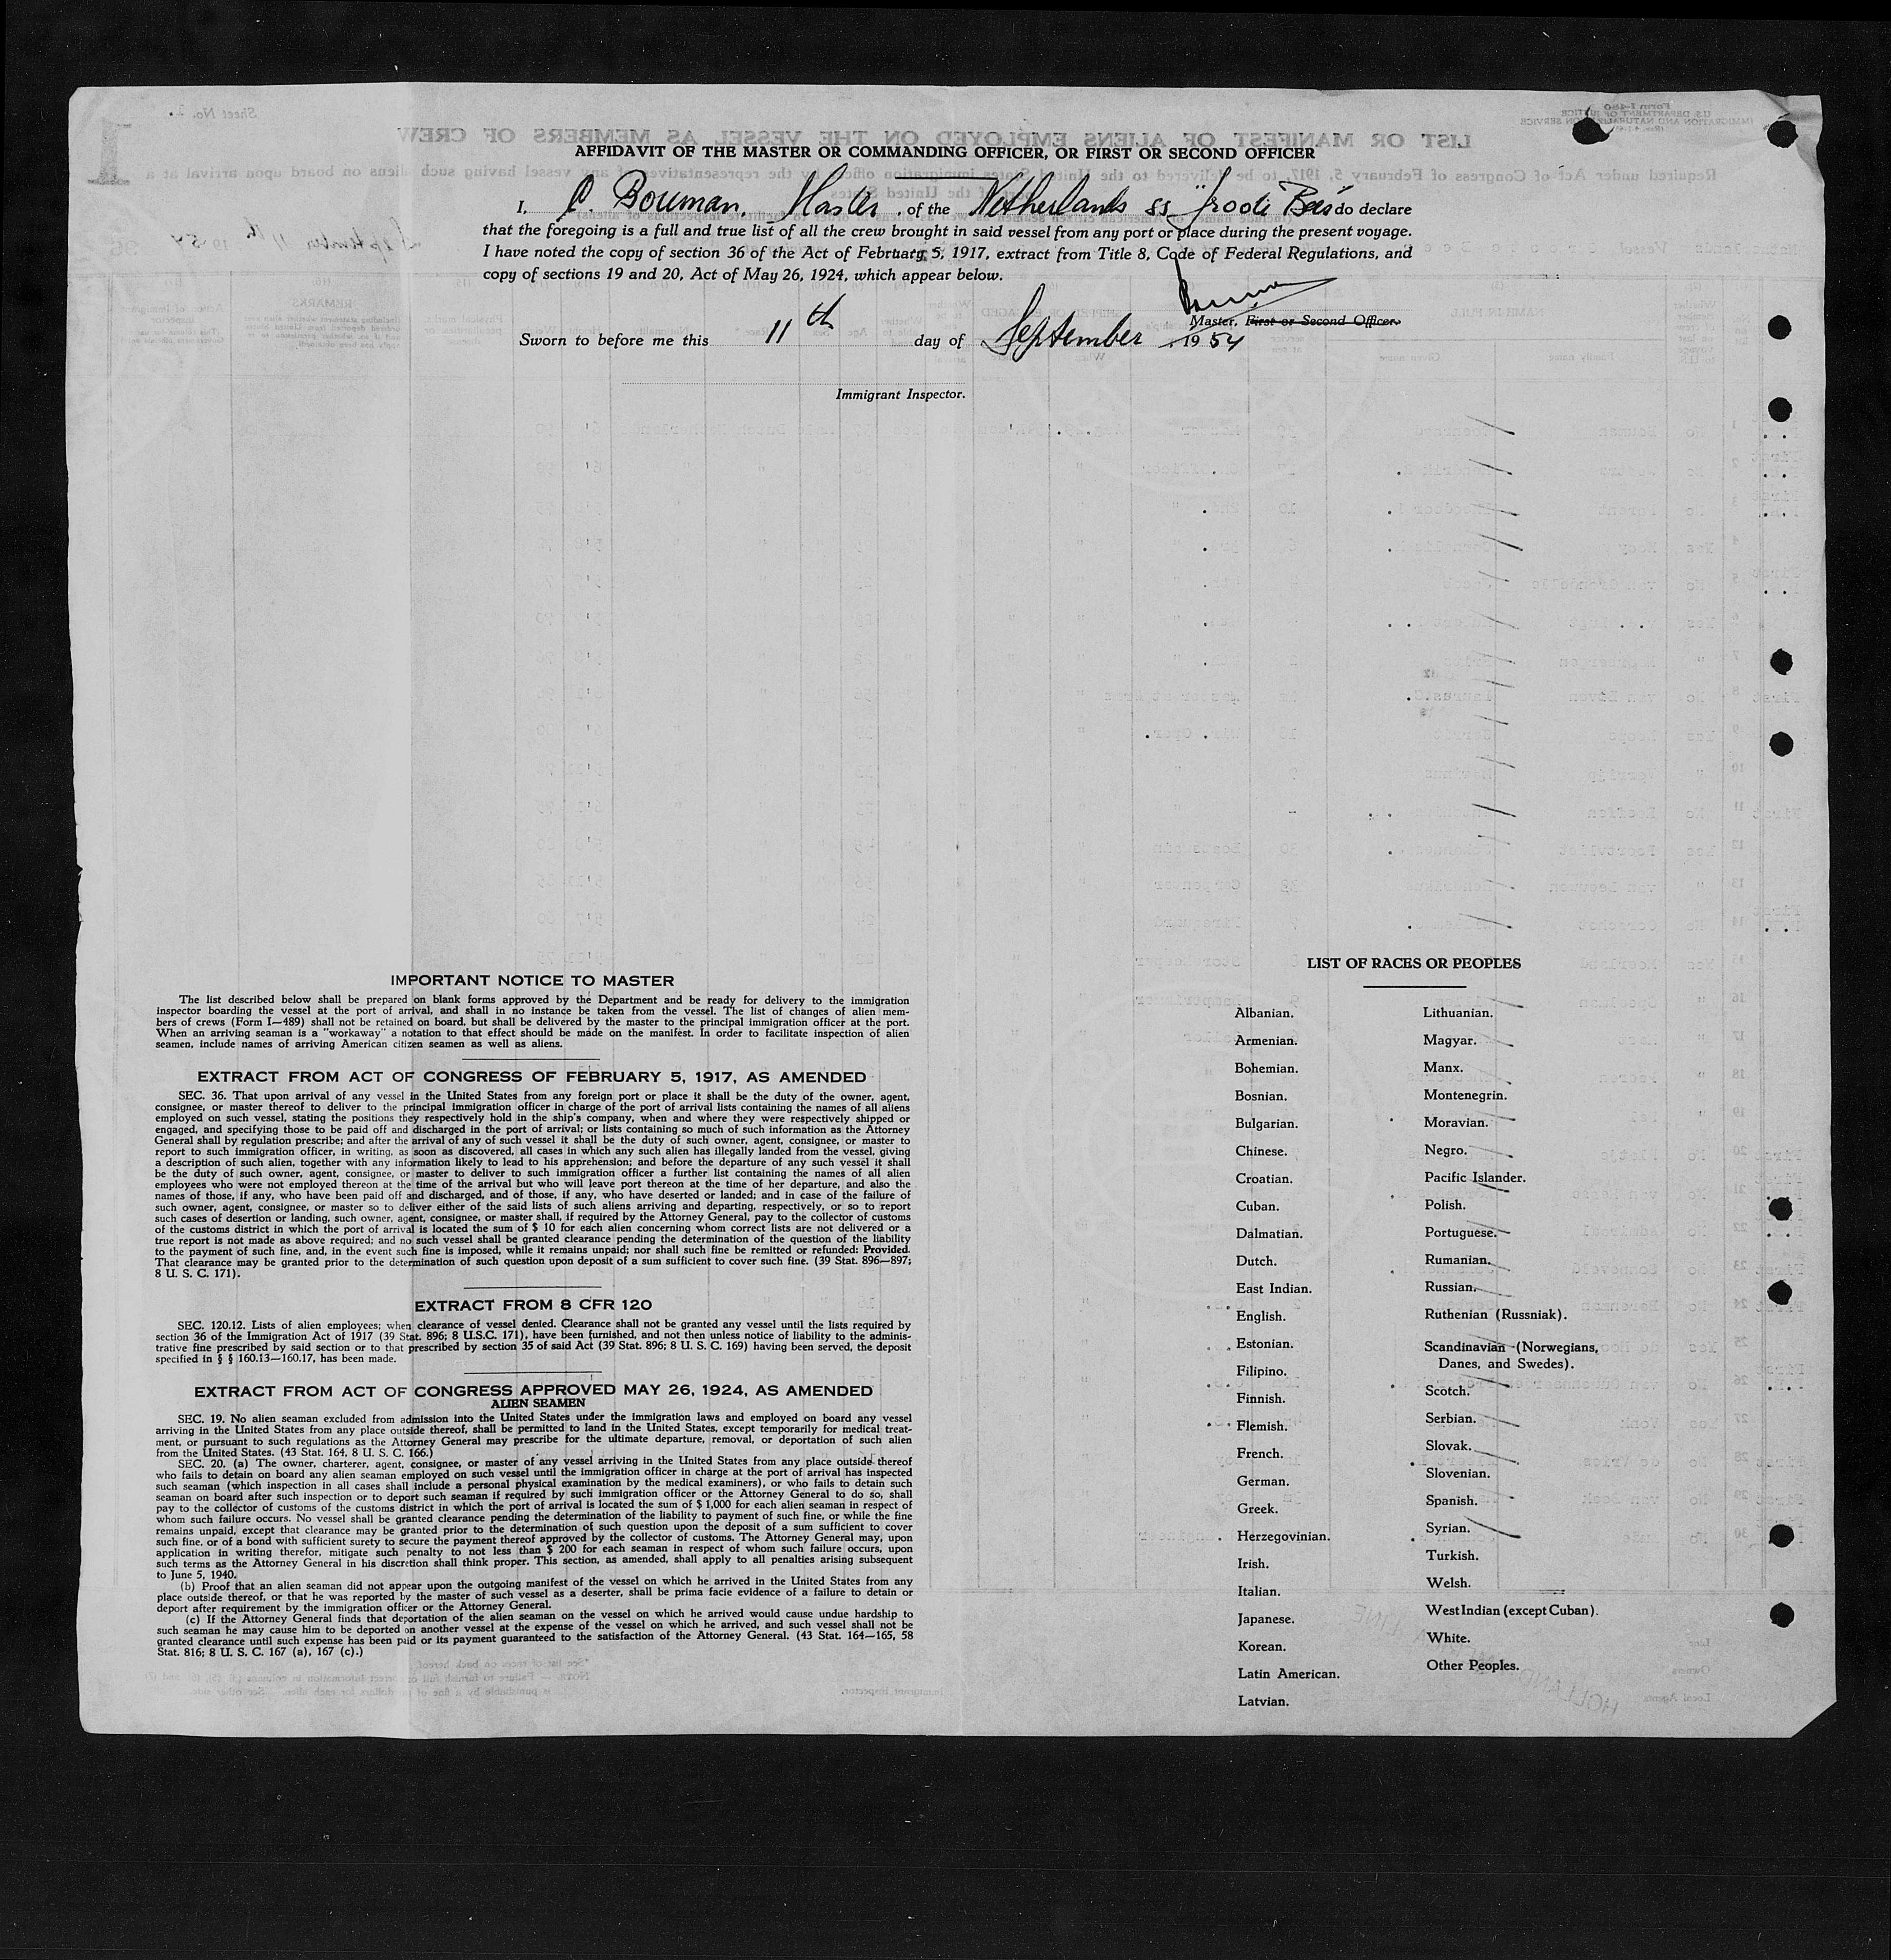 AFFIDAVIT OF THE MASTER OR COMMANDING OFFICER, OR FIRST OR SECOND OFFICER
I, Bouman, Master, of the Netherlands ss do declare
that the foregoing is a full and true list of all the crew brought in said vessel from any port or place during the present voyage.
I have noted the copy of section 36 of the Act of February 5, 1917, extract from Title 8, Code of Federal Regulations, and
copy of sections 19 and 20, Act of May 26, 1924, which appear below.
Master, First or Second Officer.
Sworn to before me this 11th day of September, 1954
Immigrant Inspector.
IMPORTANT NOTICE TO MASTER
The list described below shall be prepared on blank forms approved by the Department and be ready for delivery to the immigration
inspector boarding the vessel at the port of arrival, and shall in no instance be taken from the vessel. The list of changes of alien mem-
bers of crews (Form I—489) shall not be retained on board, but shall be delivered by the master to the principal immigration officer at the port.
When an arriving seaman is a "workaway" a notation to that effect should be made on the manifest. In order to facilitate inspection of alien
seamen, include names of arriving American citizen seamen as well as aliens.
EXTRACT FROM ACT OF CONGRESS OF FEBRUARY 5, 1917, AS AMENDED
SEC. 36. That upon arrival of any vessel in the United States from any foreign port or place it shall be the duty of the owner, agent,
consignee, or master thereof to deliver to the principal immigration officer in charge of the port of arrival lists containing the names of all aliens
employed on such vessel, stating the positions they respectively hold in the ship's company, when and where they were respectively shipped or
engaged, and specifying those to be paid off and discharged in the port of arrival; or lists containing so much of such information as the Attorney
General shall by regulation prescribe; and after the arrival of any of such vessel it shall be the duty of such owner, agent, consignee, or master to
report to such immigration officer, in writing, as soon as discovered, all cases in which any such alien has illegally landed from the vessel, giving
a description of such alien, together with any information likely to lead to his apprehension; and before the departure of any such vessel it shall
be the duty of such owner, agent, consignee, or master to deliver to such immigration officer a further list containing the names of all alien
employees who were not employed thereon at the time of the arrival but who will leave port thereon at the time of her departure, and also the
names of those, if any, who have been paid off and discharged, and of those, if any, who have deserted or landed; and in case of the failure of
such owner, agent, consignee, or master so to deliver either of the said lists of such aliens arriving and departing, respectively, or so to report
such cases of desertion or landing, such owner, agent, consignee, or master shall, if required by the Attorney General, pay to the collector of customs
of the customs district in which the port of arrival is located the sum of $ 10 for each alien concerning whom correct lists are not delivered or a
true report is not made as above required; and no such vessel shall be granted clearance pending the determination of the question of the liability
to the payment of such fine, and, in the event such fine is imposed, while it remains unpaid; nor shall such fine be remitted or refunded: Provided.
That clearance may be granted prior to the determination of such question upon deposit of a sum sufficient to cover such fine. (39 Stat. 896—897;
8 U. S. C. 171).
EXTRACT FROM 8 CFR 120
SEC. 120.12. Lists of alien employees; when clearance of vessel denied. Clearance shall not be granted any vessel until the lists required by
section 36 of the Immigration Act of 1917 (39 Stat. 896; 8 U.S.C. 171), have been furnished, and not then unless notice of liability to the adminis-
trative fine prescribed by said section or to that prescribed by section 35 of said Act (39 Stat. 896; 8 U. S. C. 169) having been served, the deposit
specified in § § 160.13—160.17, has been made.
EXTRACT FROM ACT OF CONGRESS APPROVED MAY 26, 1924, AS AMENDED
ALIEN SEAMEN
SEC. 19. No alien seaman excluded from admission into the United States under the immigration laws and employed on board any vessel
arriving in the United States from any place outside thereof, shall be permitted to land in the United States, except temporarily for medical treat-
ment, or pursuant to such regulations as the Attorney General may prescribe for the ultimate departure, removal, or deportation of such alien
from the United States. (43 Stat. 164, 8 U. S. C. 166.)
SEC. 20. (a) The owner, charterer, agent, consignee, or master of any vessel arriving in the United States from any place outside thereof
who fails to detain on board any alien seaman employed on such vessel until the immigration officer in charge at the port of arrival has inspected
such seaman (which inspection in all cases shall include a personal physical examination by the medical examiners), or who fails to detain such
seaman on board after such inspection or to deport such seaman if required by such immigration officer or the Attorney General to do so, shall
pay to the collector of customs of the customs district in which the port of arrival is located the sum of $ 1,000 for each alien seaman in respect of
whom such failure occurs. No vessel shall be granted clearance pending the determination of the liability to payment of such fine, or while the fine
remains unpaid, except that clearance may be granted prior to the determination of such question upon the deposit of a sum sufficient to cover
such fine, or of a bond with sufficient surety to secure the payment thereof approved by the collector of customs. The Attorney General may, upon
application in writing therefor, mitigate such penalty to not less than $ 200 for each seaman in respect of whom such failure occurs, upon
such terms as the Attorney General in his discretion shall think proper. This section, as amended, shall apply to all penalties arising subsequent
to June 5, 1940.
(b) Proof that an alien seaman did not appear upon the outgoing manifest of the vessel on which he arrived in the United States from any
place outside thereof, or that he was reported by the master of such vessel as a deserter, shall be prima facie evidence of a failure to detain or
deport after requirement by the immigration officer or the Attorney General.
(c) If the Attorney General finds that deportation of the alien seaman on the vessel on which he arrived would cause undue hardship to
such seaman he may cause him to be deported on another vessel at the expense of the vessel on which he arrived, and such vessel shall not be
granted clearance until such expense has been paid or its payment guaranteed to the satisfaction of the Attorney General. (43 Stat. 164—165, 58
Stat. 816; 8 U. S. C. 167 (a), 167 (c).)
LIST OF RACES OR PEOPLES
Albanian.
Armenian.
Bohemian.
Bosnian.
Bulgarian.
Chinese.
Croatian.
Cuban.
Dalmatian.
Dutch.
East Indian.
English.
Estonian.
Filipino.
Finnish.
Flemish.
French.
German.
Greek.
Herzegovinian.
Irish.
Italian.
Japanese.
Korean.
Latin American.
Latvian.
Lithuanian.
Magyar.
Manx.
Montenegrin.
Moravian.
Negro.
Pacific Islander.
Polish.
Portuguese.
Rumanian.
Russian.
Ruthenian (Russniak).
Scandinavian (Norwegians,
Danes, and Swedes).
Scotch.
Serbian.
Slovak.
Slovenian.
Spanish.
Syrian.
Turkish.
Welsh.
West Indian (except Cuban).
White.
Other Peoples.